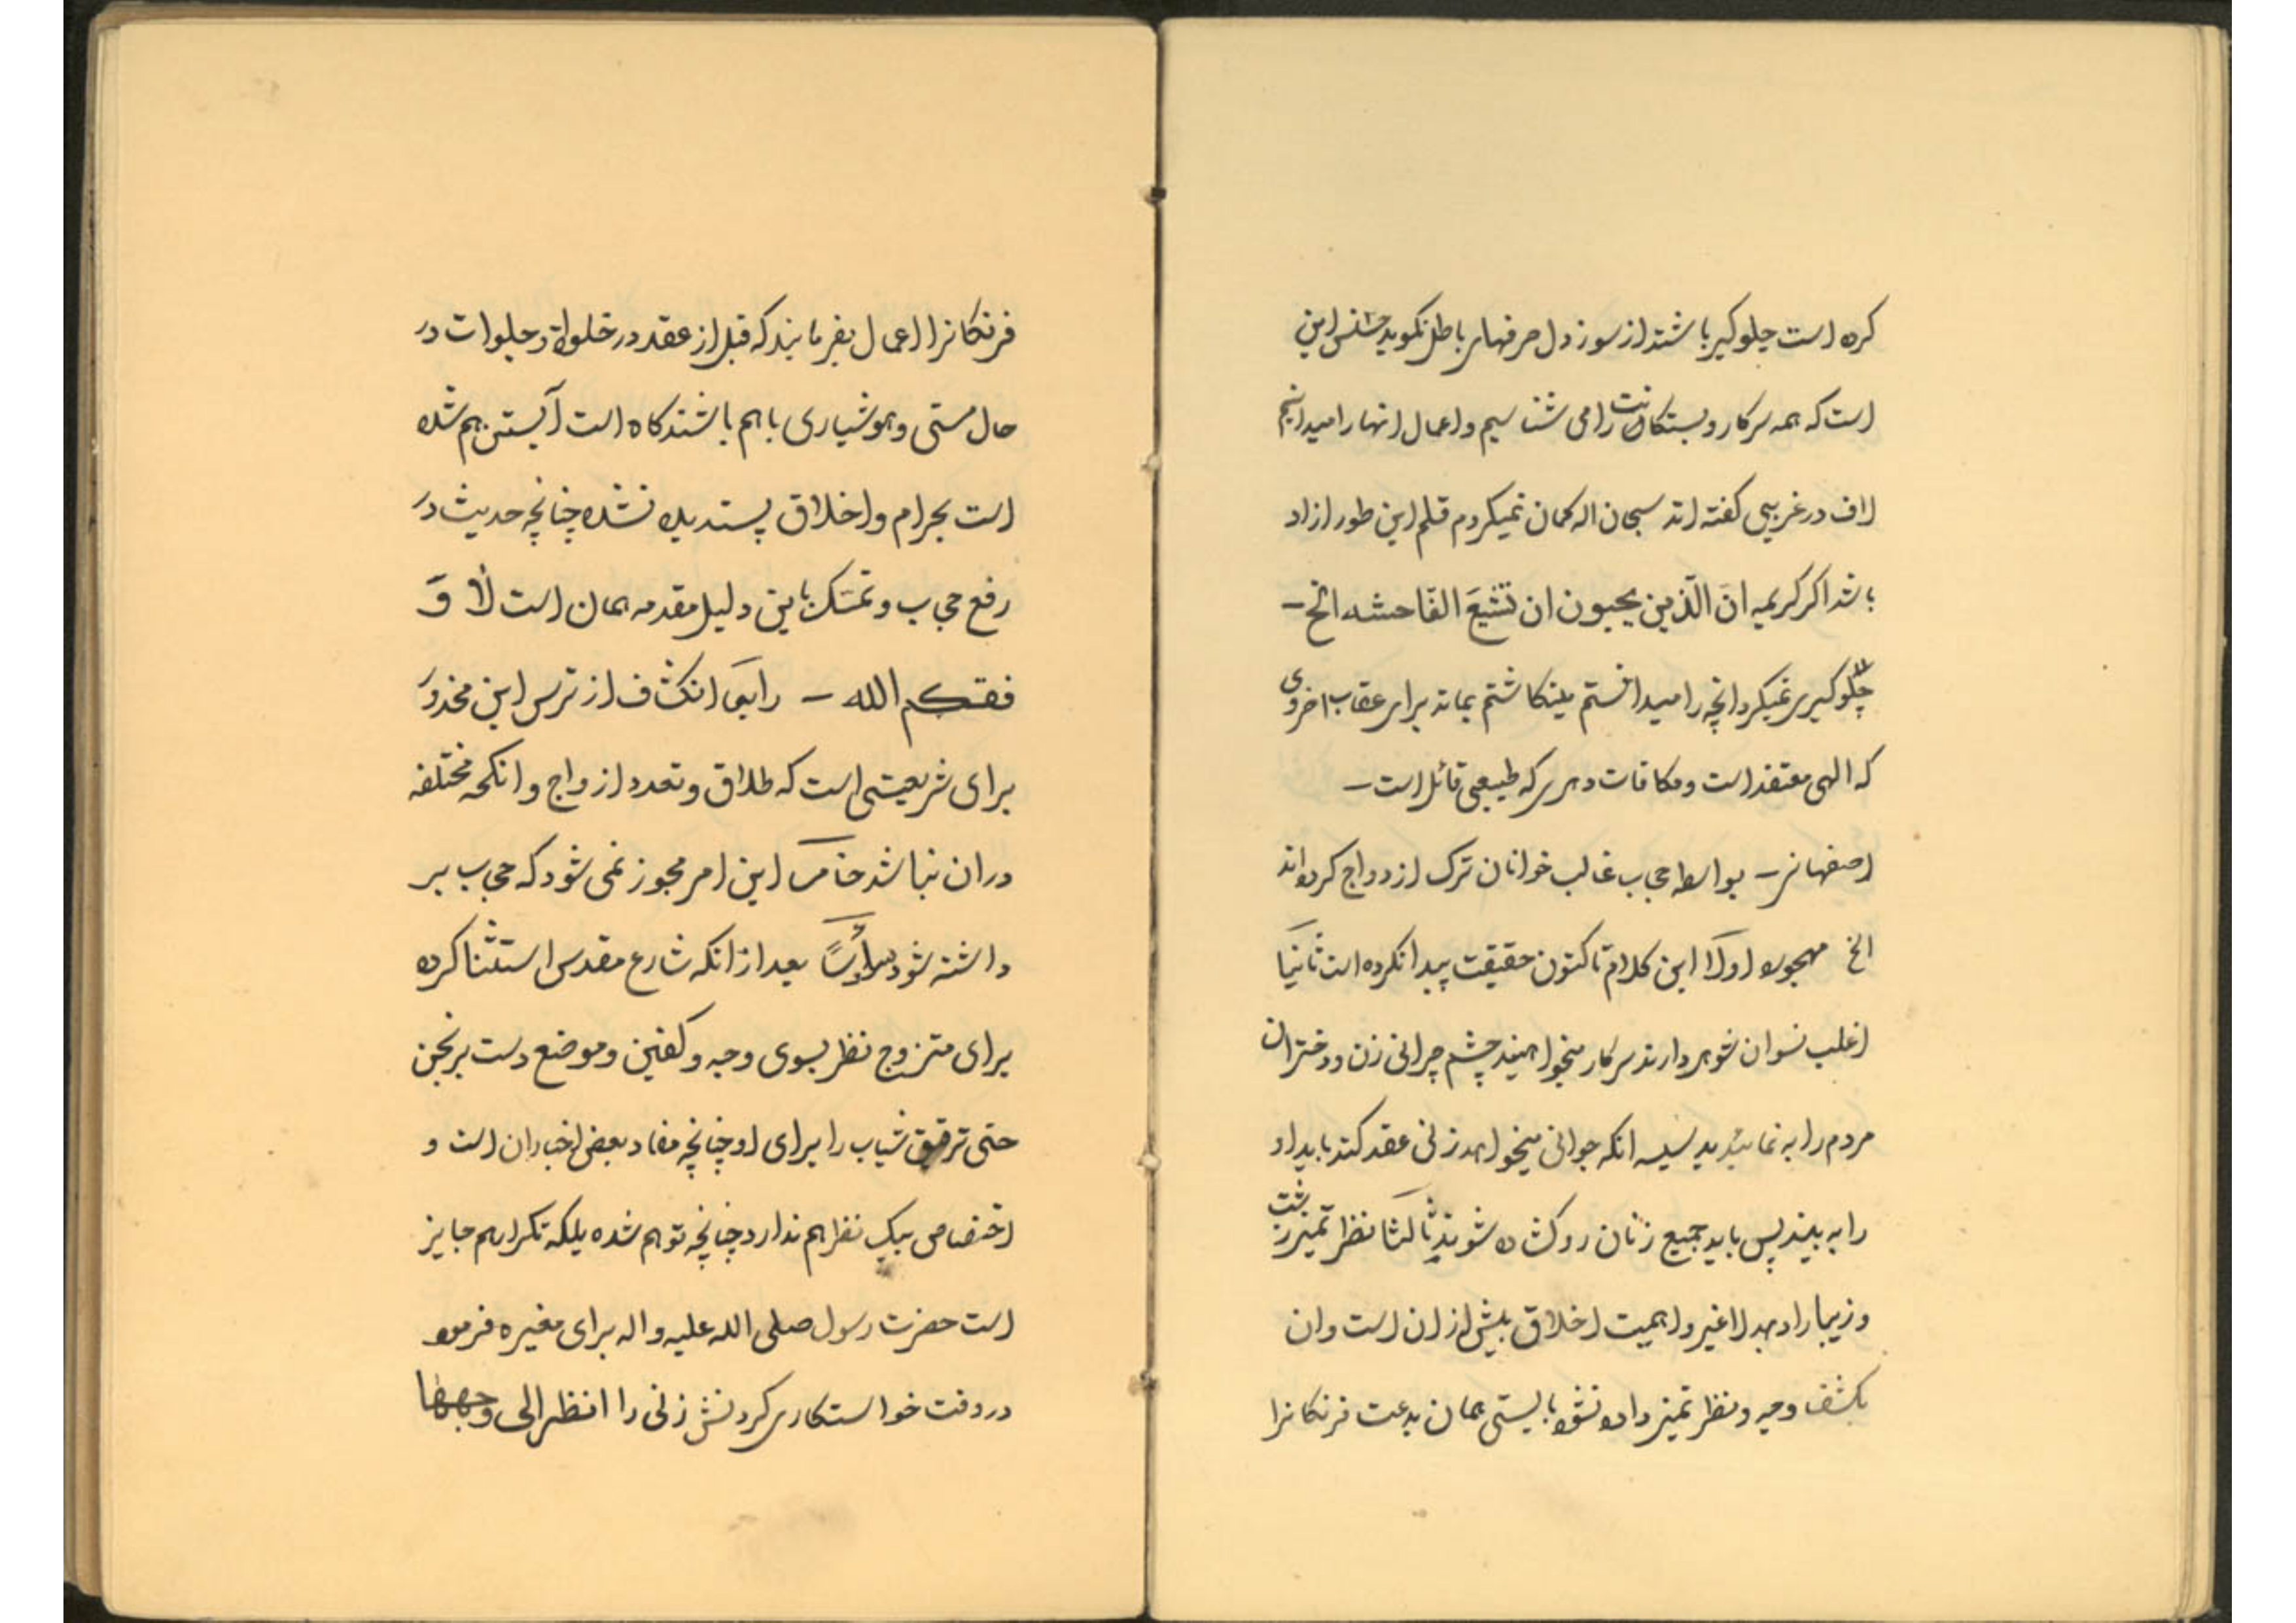 کره است جلوگیر باشند از سوز دل حرفهای باطل نگوید جنس این
است که همه سرکار و بستگانت را می شناسیم و اعمال انها را میدانیم
لاف در غریبی گفته اند سبحان اله گمان نمیکردم قلم این طور ازاد
باشد اگر کریمه انَ الّذین یحبون ان تشیعَ الفاحشه الخ –
جلوگیری نمیکرد انچه را میدانستم مینگاشتم بماند برای عقاب اخروی
که الهی معتقد است و مکافات دهری که طبیعی قائل است –
اصفهانی – بواسطه حجاب غالب خوانان ترک ازدواج کرده‌اند
الخ مهجور اولا این کلام تا کنون حقیقت پیدا نکرده است ثانیا
اغلب نسوان شوهر دارند سرکار میخواهید چشم چرانی زن و دختران
مردم را به نمائید بدسیسه انکه جوانی میخواهد زنی عقد کند باید او
را به بیند پس باید جمیع زنان رو گشاده شوند ثالثا نظر تمیز زشت
و زیبا را دهد لاغیر و اهمیت اخلاق بیش از ان است و ان
بکشف وجه و نظر تمیز داده نشود بایستی همان بدعت فرنگانرا
فرنگانرا اعمال بفرمایند که قبل از عقد در خلوات و جلوات در
حال مستی و هوشیاری باهم باشند گاه است آبستن هم شده
است بحرام و اخلاق پسندیده نشده چنانچه حدیث در
رفع حجاب و تمسّک باین دلیل مقدمه همان است لا وَ
فقکم الله – رابعا انکشاف از ترس این مخدور
برای شریعتی است که طلاق و تعدد ازواج و انکحه مختلفه
دران نباشد خامسا این امر مجوز نمی شود که حجاب بر
داشته شود سادسًا بعد از انکه شارع مقدس استثنا کرده
برای متزوج نظر بسوی وجه و کفین و موضع دست برنجن
حتی ترقیق ثیاب را برای او چنانچه مفاد بعض اخباران است و
اختصاص بیک نظر هم ندارد چنانچه توهم شده بلکه تکرار هم جایز
است حضرت رسول صلی الله علیه و اله برای مغیره فرموده
در وقت خواستکاری کردنش زنی را انظر الی وجهها